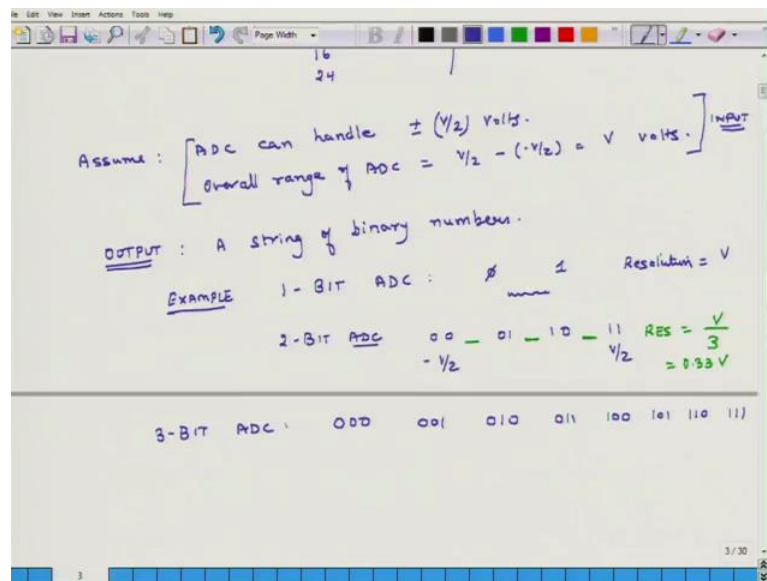 File Edit View Insert Actions Tools Help
Page Width
B I
16
24
Assume : [ADC can handle ± (V/2) volts.
Overall range of ADC = V/2 - (-V/2) = V volts.] INPUT
OUTPUT : A string of binary numbers.
EXAMPLE 1-BIT ADC : 0 1 Resolution = V
2-BIT ADC 00 - 01 - 10 - 11 RES = V/3
-V/2 V/2 = 0.33 V
3-BIT ADC : 000 001 010 011 100 101 110 111
3 / 30
3